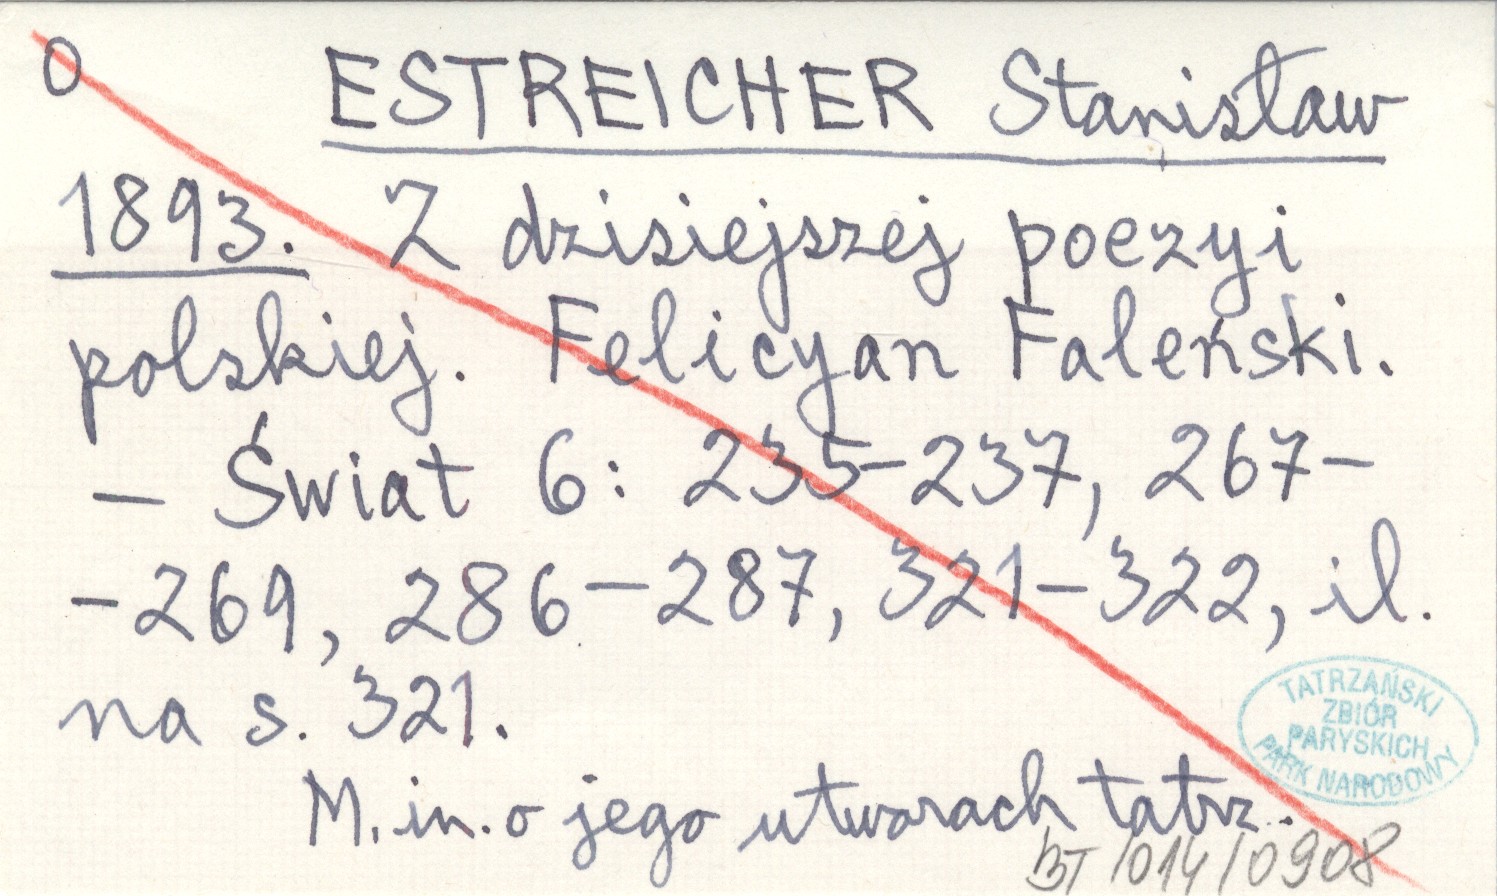 O
ESTREICHER Stanisław
1893. Z dzisiejszej poezyi
polskiej. Felicyan Faleński.
— Świat 6: 235-237, 267-
-269, 286-287, 321-322, il.
na s. 321.
M.in. o jego utworach tatrz.
TATRZAŃSKI
ZBIÓR
PARYSKICH
PARK NARODOWY
BT/014/0908